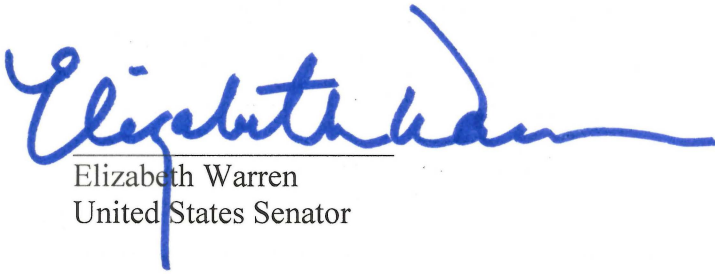 Elizabeth Warren
Elizabeth Warren
United States Senator